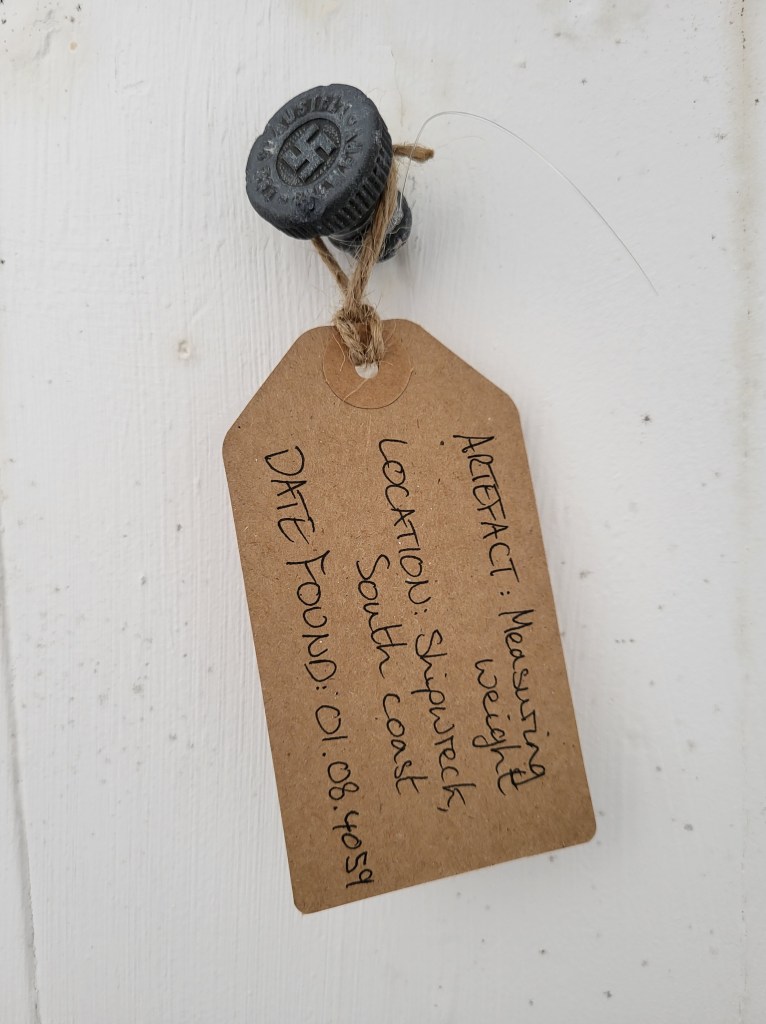 ARTEFACT: Measuring
weight
LOCATION: Shipwreck,
South coast
DATE FOUND: 01.08.4059